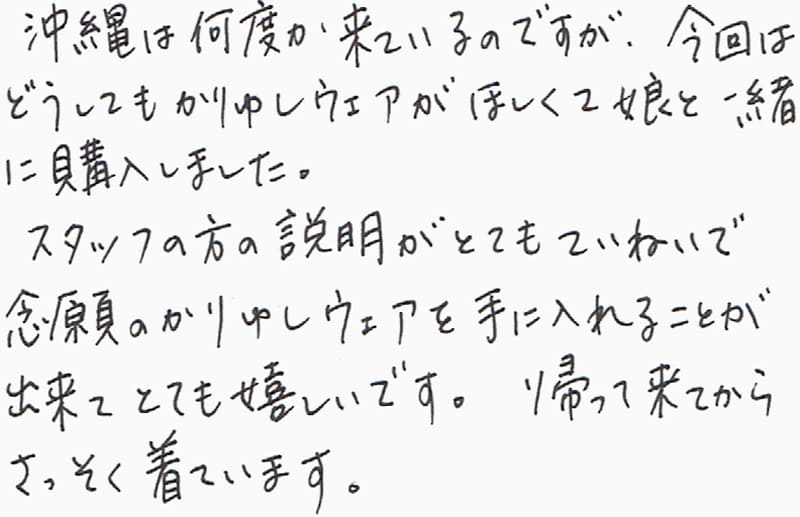 沖縄は何度か来ているのですが、今回は
どうしてもかりゆしウェアがほしくて娘と一緒
に購入しました。
スタッフの方の説明がとてもていねいで
念願のかりゆしウェアを手に入れることが
出来てとても嬉しいです。 帰って来てから
さっそく着ています。